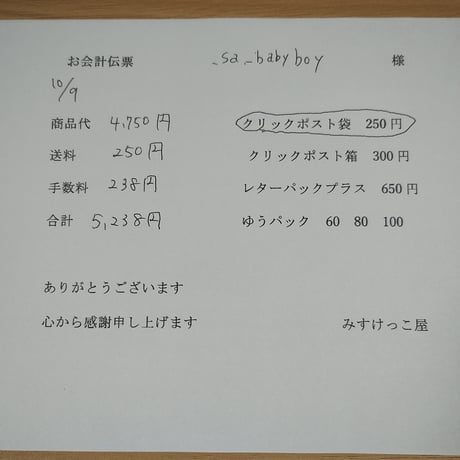 お会計伝票 -sa_-babyboy 様
10/9
商品代 4,750円 クリックポスト袋 250円
送料 250円 クリックポスト箱 300円
手数料 238円 レターパックプラス 650円
合計 5,238円 ゆうパック 60 80 100
ありがとうございます
心から感謝申し上げます みすけっこ屋